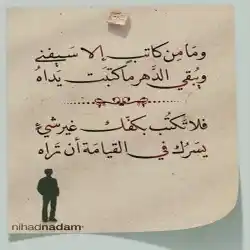 وَمَا مِن كَاتبٍ إلا سَيَفنى
ويُبقي الدَّهر مَا كتبَت يَداهُ
فلا تَكتُب بكفّك غير شيءٍ
يسُرك في القيَامَة أن تَراه
nihadnadam